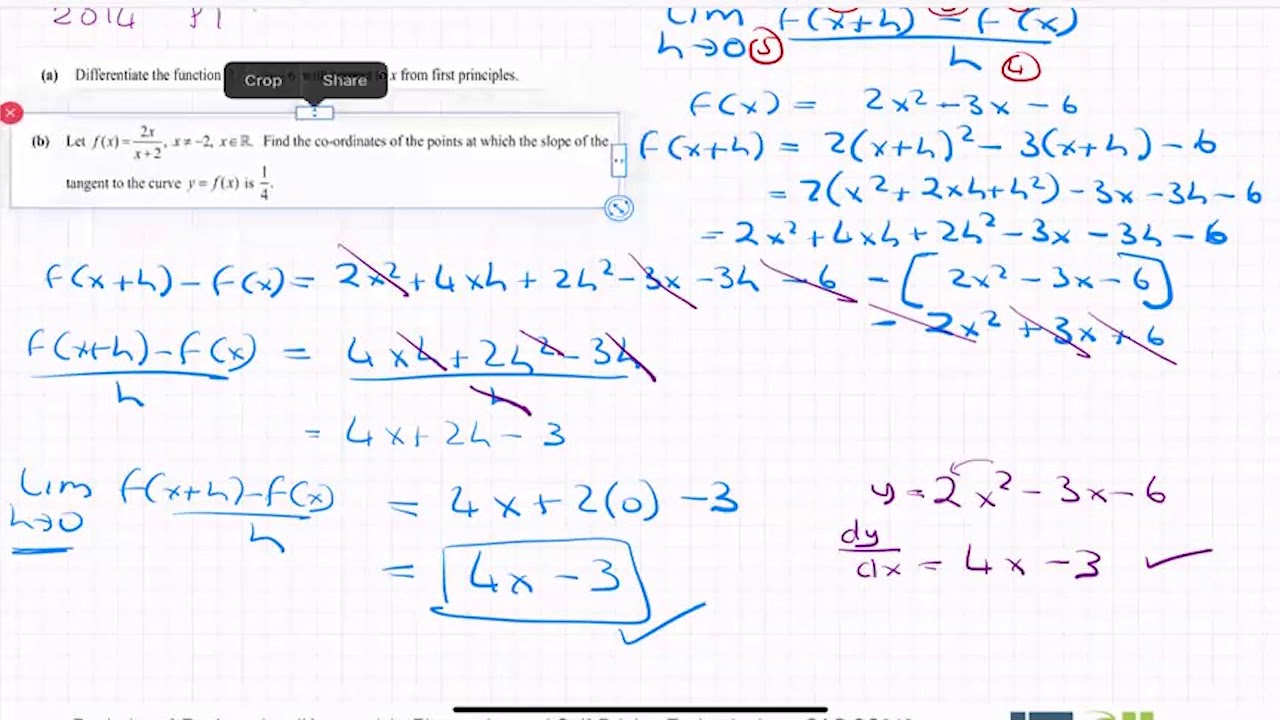 2014 P1
(a) Differentiate the function x from first principles.
Crop Share
(b) Let f(x) = 2x/(x+2), x ≠ −2, x ∈ ℝ. Find the co-ordinates of the points at which the slope of the
tangent to the curve y = f(x) is 1/4.
lim h→0 (f(x+h) − f(x))/h ③ ④
f(x) = 2x² − 3x − 6
f(x+h) = 2(x+h)² − 3(x+h) − 6
= 2(x² + 2xh + h²) − 3x − 3h − 6
= 2x² + 4xh + 2h² − 3x − 3h − 6
f(x+h) − f(x) = 2x² + 4xh + 2h² − 3x − 3h − 6 − [2x² − 3x − 6]
− 2x² + 3x + 6
(f(x+h) − f(x))/h = (4xh + 2h² − 3h)/h
= 4x + 2h − 3
Lim h→0 (f(x+h) − f(x))/h = 4x + 2(0) − 3
= 4x − 3
y = 2x² − 3x − 6
dy/dx = 4x − 3